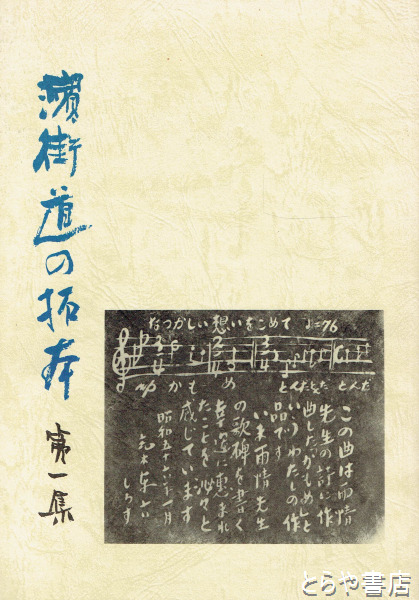 濱街道の拓本
第一集
なつかしい想いをこめて ♩=76
mp かもめ とんだとんだ とんだ
この曲は雨情
先生の詩に作
曲したかもめと
いうわたしの作
品です
いま雨情先生
の歌碑を書く
幸運に恵まれ
たことを沁々と
感じています
昭和五十六年一月
しるす
とらや書店